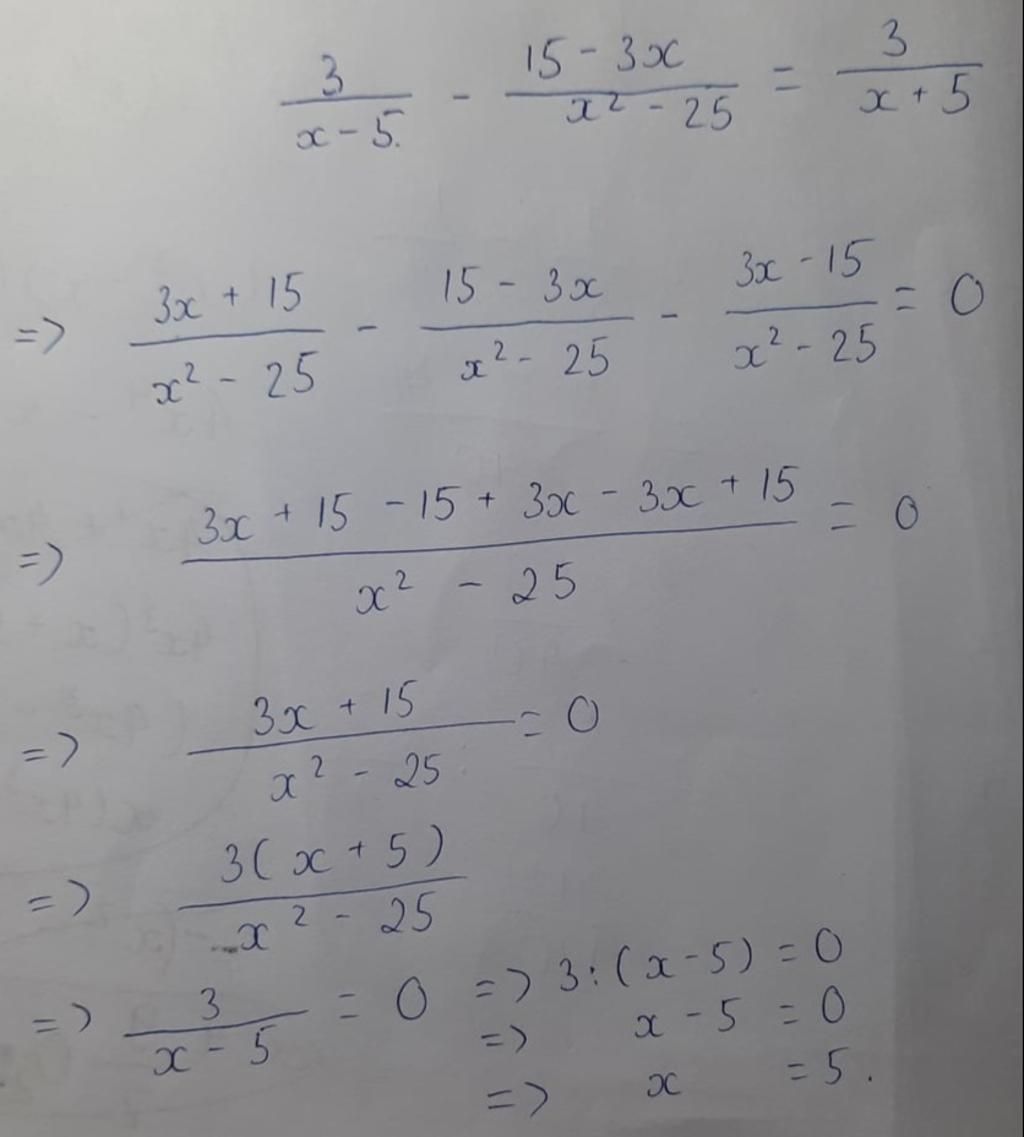 3/(x - 5) - (15 - 3x)/(x² - 25) = 3/(x + 5)
=> (3x + 15)/(x² - 25) - (15 - 3x)/(x² - 25) - (3x - 15)/(x² - 25) = 0
=> (3x + 15 - 15 + 3x - 3x + 15)/(x² - 25) = 0
=> (3x + 15)/(x² - 25) = 0
=> 3(x + 5)/(x² - 25)
=> 3/(x - 5) = 0 => 3 : (x - 5) = 0
=> x - 5 = 0
=> x = 5.